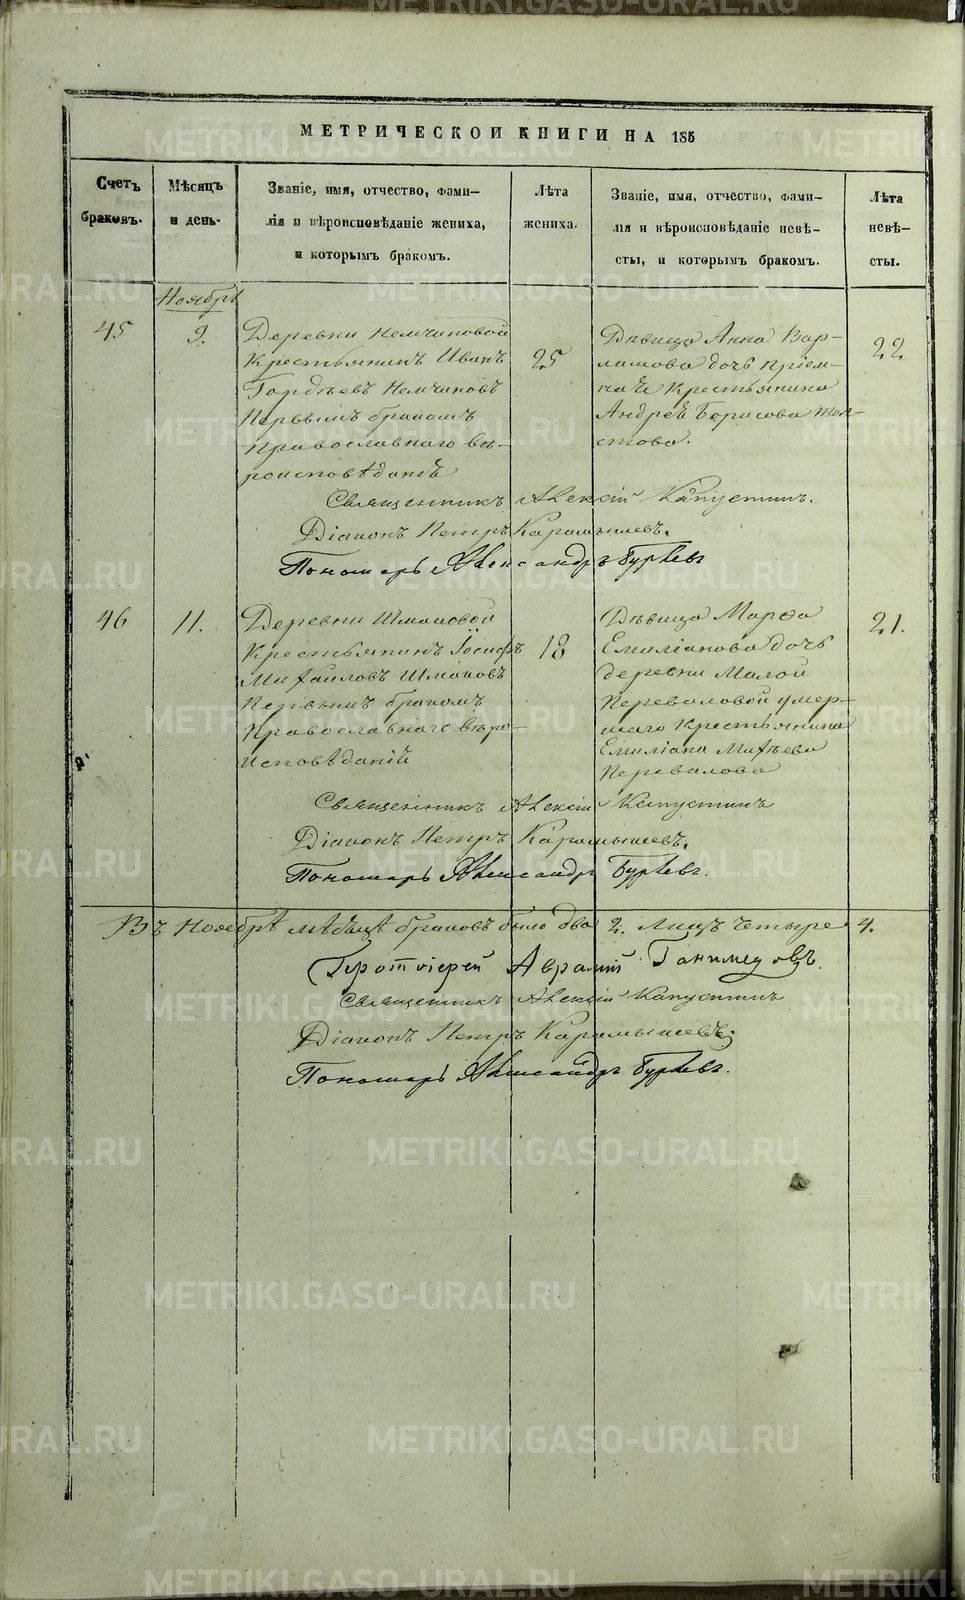 МЕТРИЧЕСКОЙ КНИГИ НА 185
Счетъ браковъ.
Мѣсяцъ и день.
Званіе, имя, отчество, фами-
лія и вѣроисповѣданіе жениха,
и которымъ бракомъ.
Лѣта жениха.
Званіе, имя, отчество, фами-
лія и вѣроисповѣданіе невѣ-
сты, и которымъ бракомъ.
Лѣта невѣ-
сты.
Ноябрь
45
9.
Деревни Немчиновой
Крестьянинъ Иванъ
Гордѣевъ Немчиновъ
Первымъ бракомъ
Православнаго вѣ-
роисповѣданія
25
Дѣвица Анна Вар-
ламова дочь пріем-
на Крестьянина
Андрея Борисова
22
Священникъ Алексій Капустинъ.
Діаконъ Петръ Карамышевъ.
Пономарь Александръ Бурѣевъ
46
11.
Деревни Шмаковой
Крестьянинъ Іосифъ
Михайловъ Шмаковъ
Первымъ бракомъ
Православнаго вѣро
исповѣданія
18
Дѣвица Марфа
Емиліанова дочь
деревни Малой
Переваловой умер-
шаго Крестьянина
Емиліана Матѣева
Перевалова
21.
Священникъ Алексій Капустинъ
Діаконъ Петръ Карамышевъ.
Пономарь Александръ Бурѣевъ.
Въ Ноябрѣ мѣсяцѣ браковъ было два 2. Лицъ четыре 4.
Протоіерей Аврамій Ганимедовъ.
Священникъ Алексій Капустинъ
Діаконъ Петръ Карамышевъ.
Пономарь Александръ Бурѣевъ.
METRIKI.GASO-URAL.RU